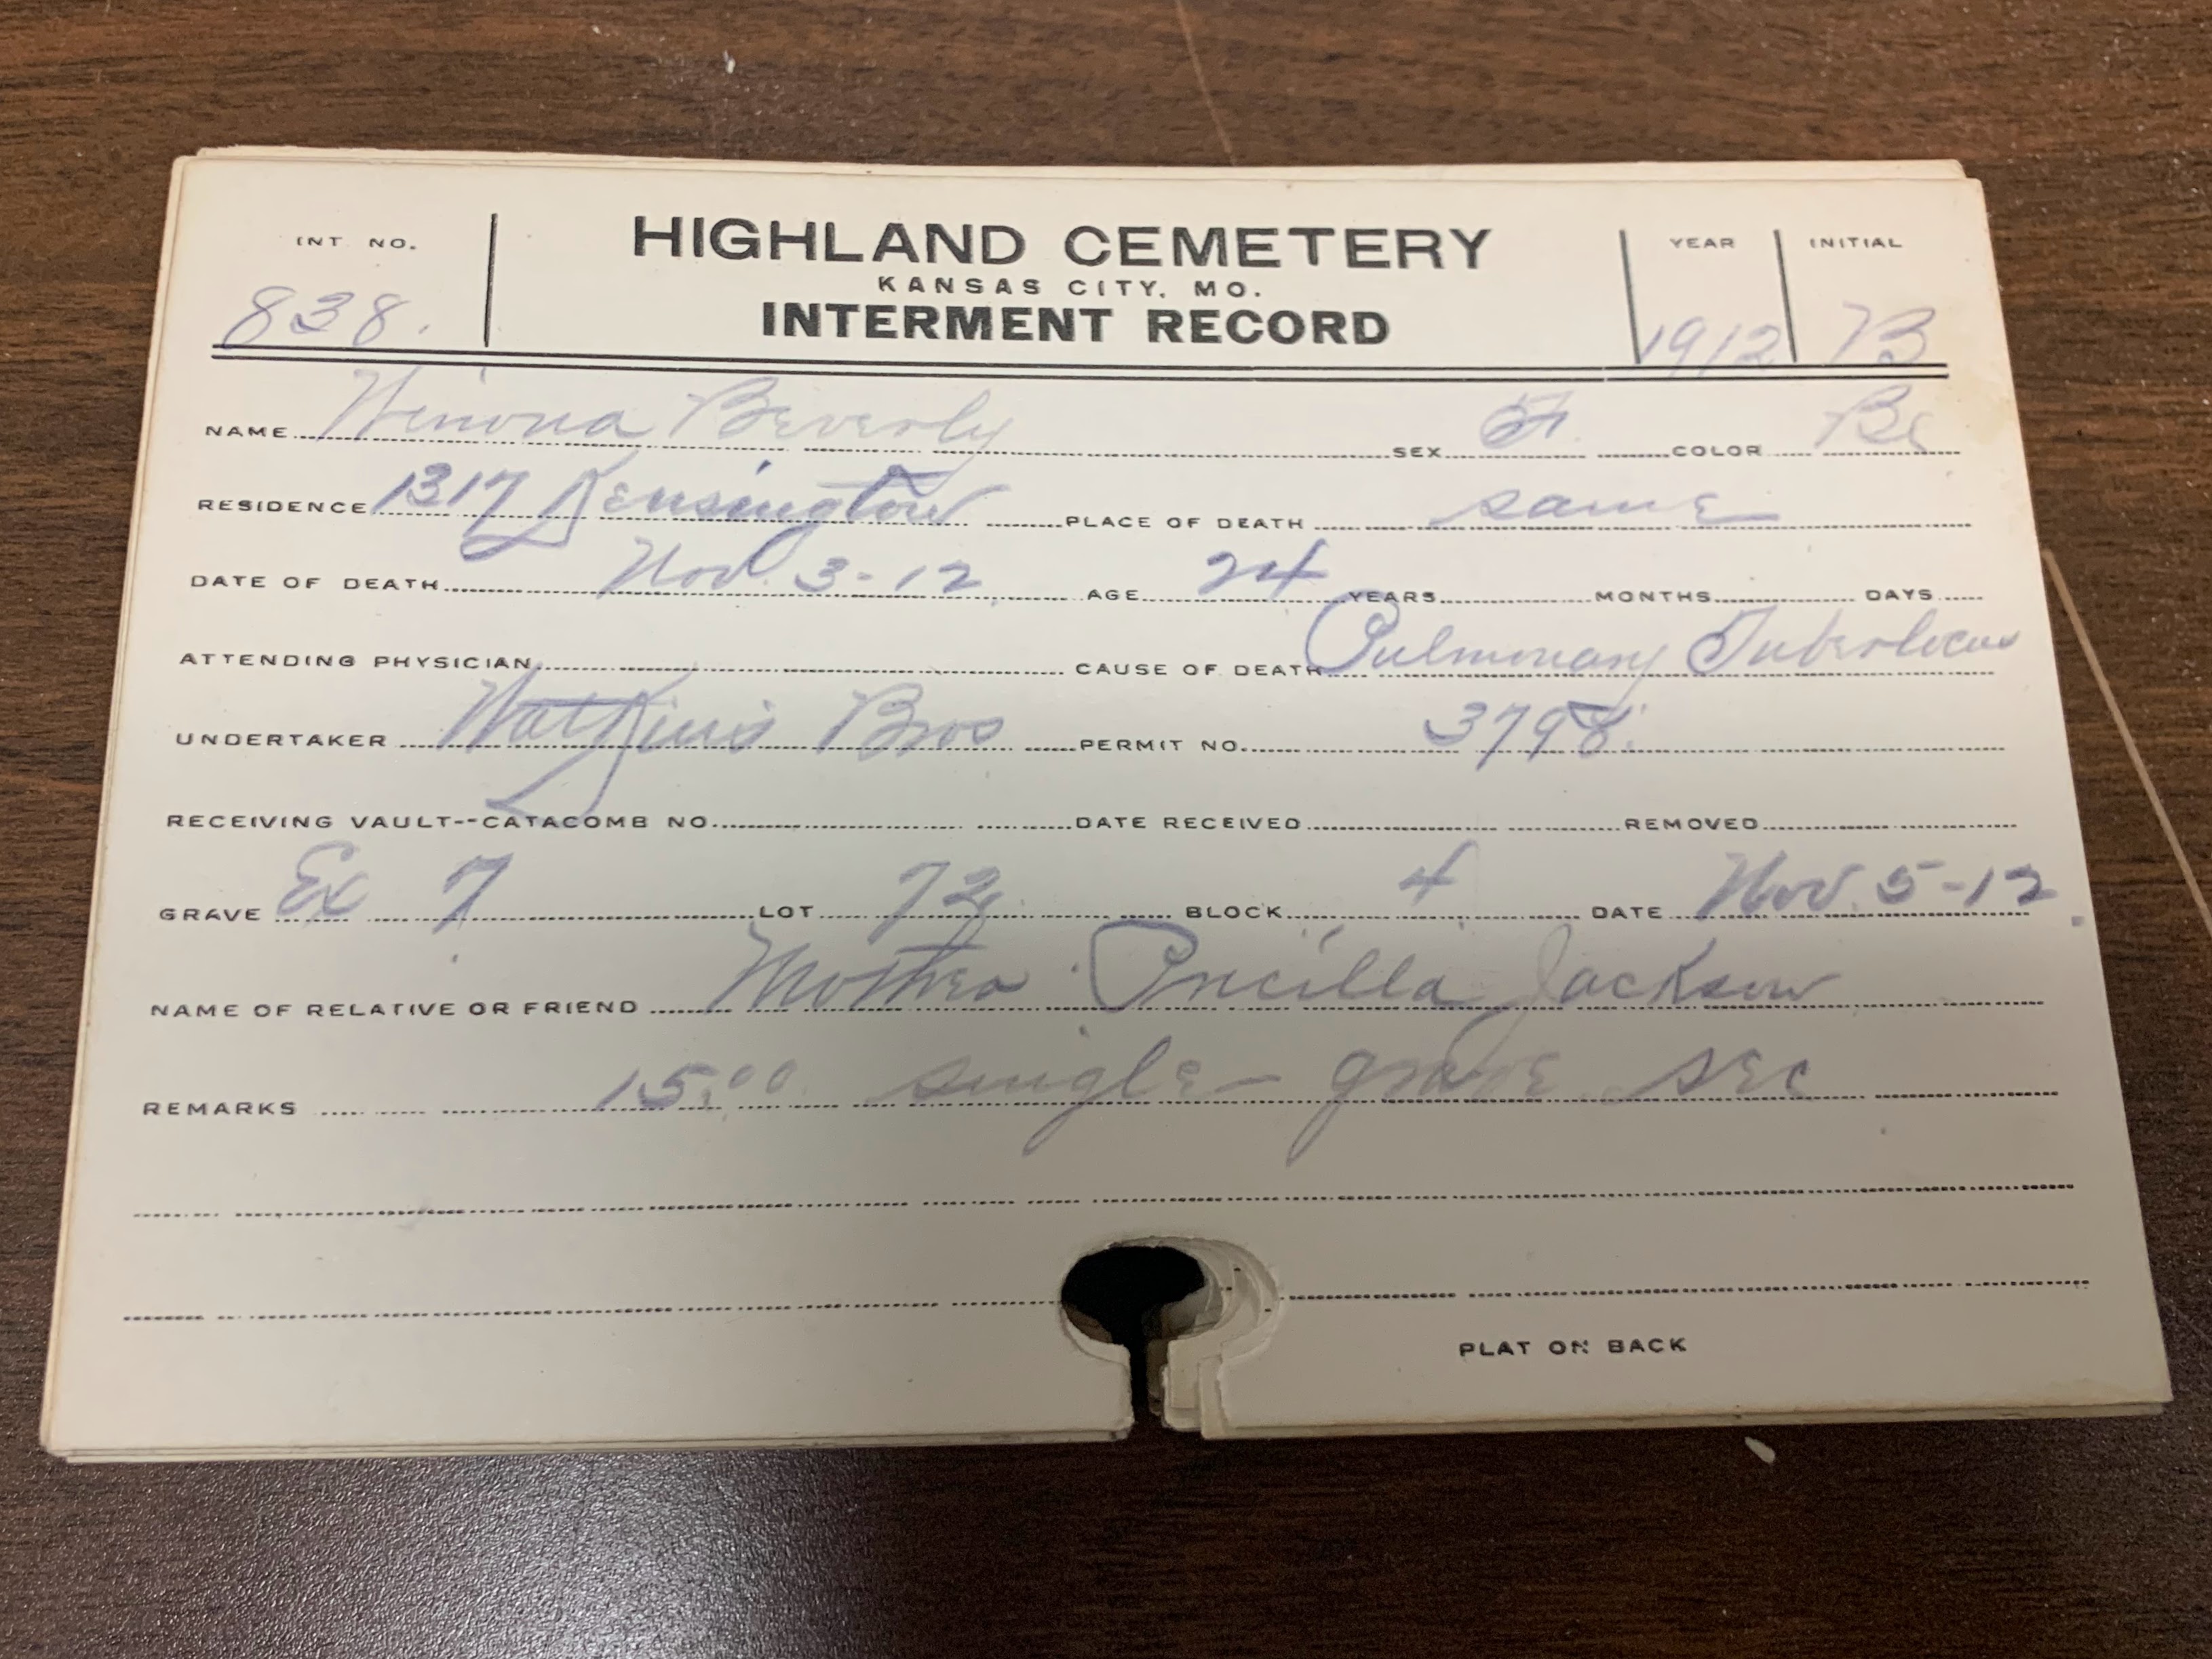 INT. NO. HIGHLAND CEMETERY YEAR INITIAL
KANSAS CITY, MO.
838. INTERMENT RECORD 1912 B
NAME Winona Beverly SEX F. COLOR Bl
RESIDENCE 1317 Kensington PLACE OF DEATH same
DATE OF DEATH Nov. 3-12. AGE 24 YEARS MONTHS DAYS
ATTENDING PHYSICIAN CAUSE OF DEATH Pulmonary Tuberlocus
UNDERTAKER Watkins Bros PERMIT NO. 3798.
RECEIVING VAULT--CATACOMB NO. DATE RECEIVED REMOVED
GRAVE Ex 7 LOT 72. BLOCK 4 DATE Nov. 5-12.
NAME OF RELATIVE OR FRIEND Mother Pricilla Jackson
REMARKS 15.00 single grave sec
PLAT ON BACK